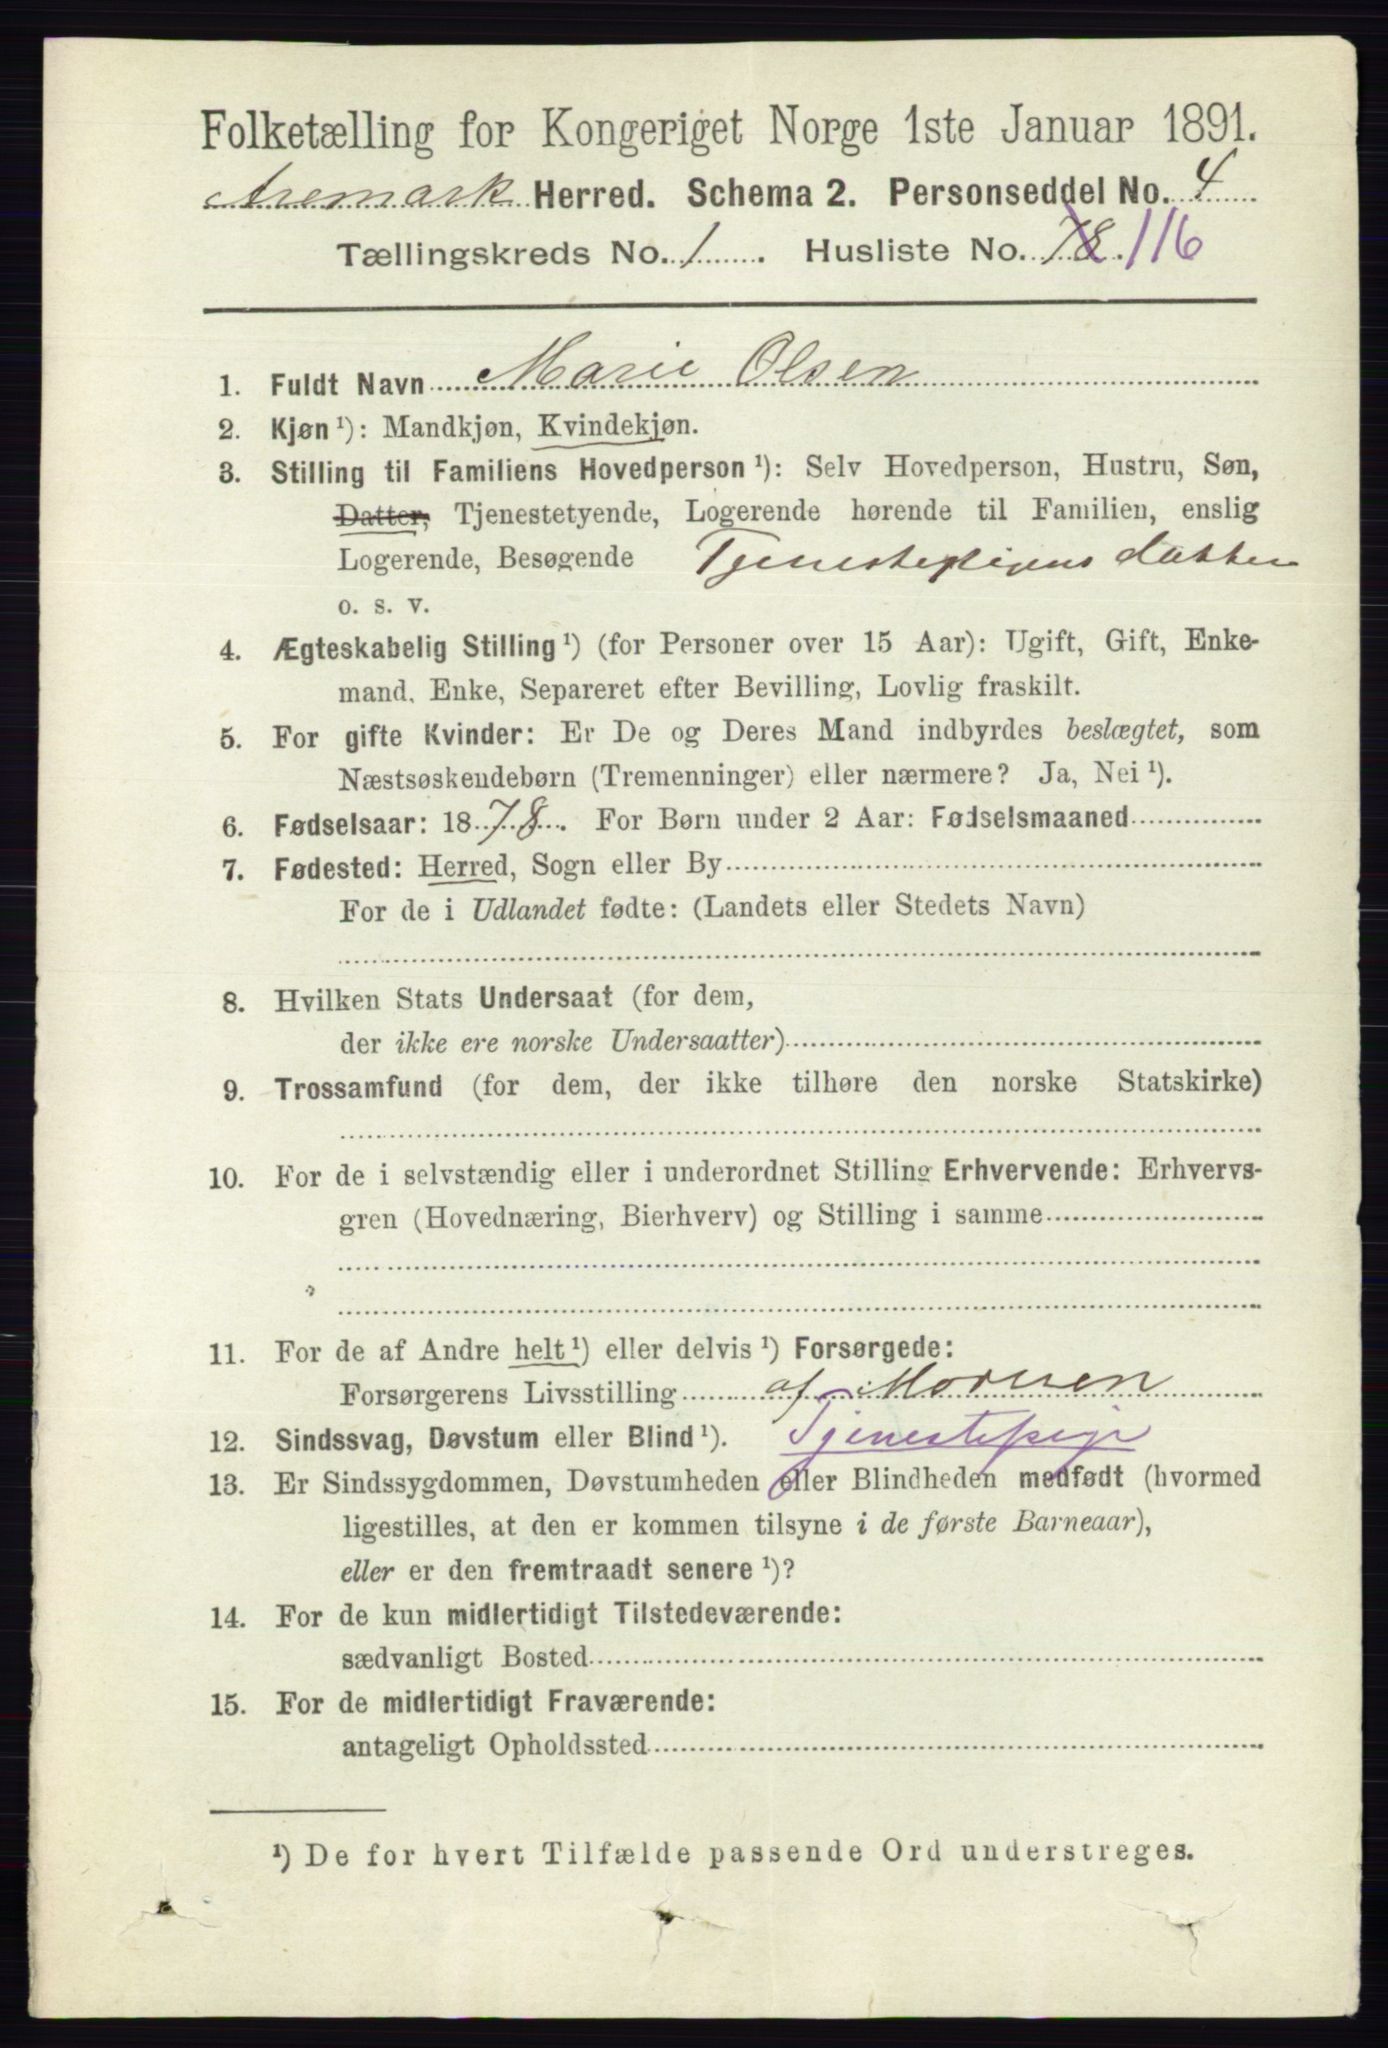 Folketælling for Kongeriget Norge 1ste Januar 1891.
Aremark Herred. Schema 2. Personseddel No. 4
Tællingskreds No. 1. Husliste No. 78. 116
1. Fuldt Navn Marie Olsen
2. Kjøn ¹): Mandkjøn, Kvindekjøn.
3. Stilling til Familiens Hovedperson ¹): Selv Hovedperson, Hustru, Søn,
Datter, Tjenestetyende, Logerende hørende til Familien, enslig
Logerende, Besøgende Tjenestepigens datter
o. s. v.
4. Ægteskabelig Stilling ¹) (for Personer over 15 Aar): Ugift, Gift, Enke-
mand, Enke, Separeret efter Bevilling, Lovlig fraskilt.
5. For gifte Kvinder: Er De og Deres Mand indbyrdes beslægtet, som
Næstsøskendebørn (Tremenninger) eller nærmere? Ja, Nei ¹).
6. Fødselsaar: 1878. For Børn under 2 Aar: Fødselsmaaned
7. Fødested: Herred, Sogn eller By
For de i Udlandet fødte: (Landets eller Stedets Navn)
8. Hvilken Stats Undersaat (for dem,
der ikke ere norske Undersaatter)
9. Trossamfund (for dem, der ikke tilhøre den norske Statskirke)
10. For de i selvstændig eller i underordnet Stilling Erhvervende: Erhvervs-
gren (Hovednæring, Bierhverv) og Stilling i samme
11. For de af Andre helt ¹) eller delvis ¹) Forsørgede:
Forsørgerens Livsstilling af Moderen
12. Sindssvag, Døvstum eller Blind ¹). Tjenestepige
13. Er Sindssygdommen, Døvstumheden eller Blindheden medfødt (hvormed
ligestilles, at den er kommen tilsyne i de første Barneaar),
eller er den fremtraadt senere ¹)?
14. For de kun midlertidigt Tilstedeværende:
sædvanligt Bosted
15. For de midlertidigt Fraværende:
antageligt Opholdssted
¹) De for hvert Tilfælde passende Ord understreges.